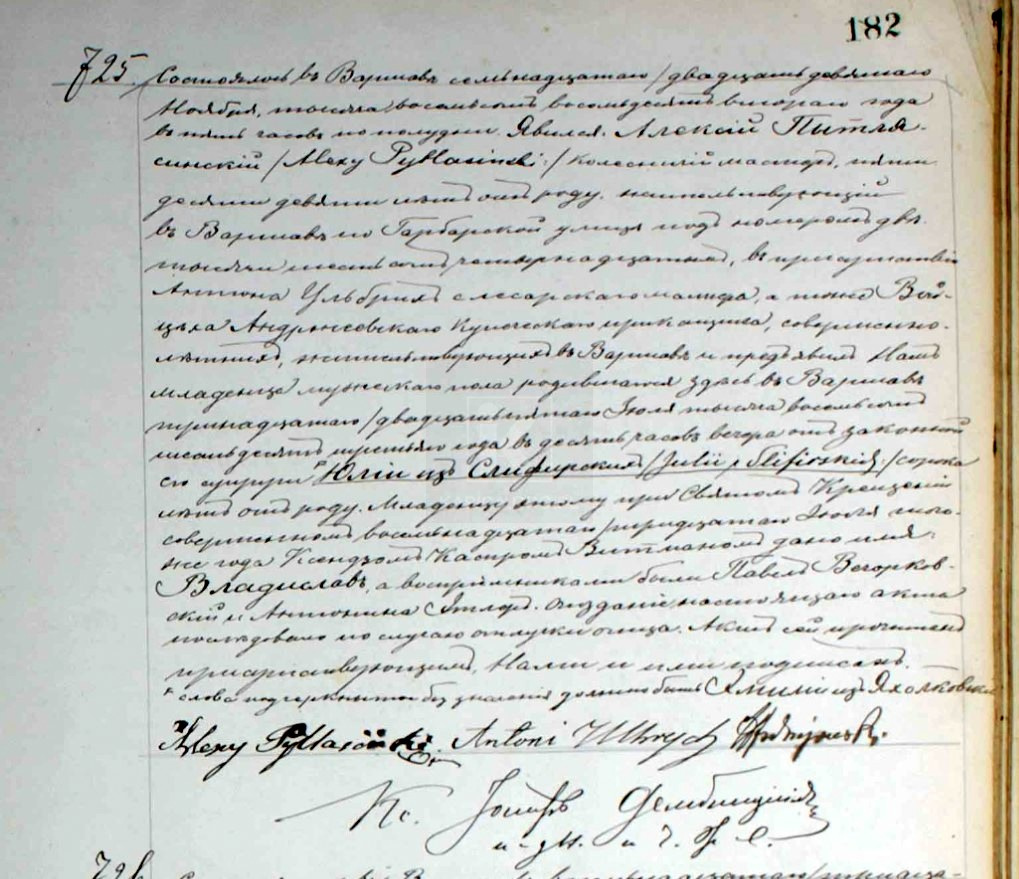 182
725. Состоялось въ Варшавѣ семьнадцатаго /двадцать девятаго
Ноября, тысяча восемьсотъ восемьдесятъ втораго года
въ пять часовъ по полудни. Явился Алексѣй Пытля-
синскій /Alexy Pytlasiński:/ колесничій мастеръ, пяти
десяти девяти лѣтъ отъ роду, жительствующій
въ Варшавѣ по Гарбарской улицѣ подъ номеромъ двѣ
тысячи шестьсотъ четырнадцатымъ, въ присутствіи
Антона Ульбрихъ слесарскаго мастера, а также Вой-
цѣха Андржеевскаго купеческаго прикащика, совершенно-
лѣтнихъ, жительствующихъ въ Варшавѣ и предъявилъ Намъ
младенца мужескаго пола родившагося здѣсь въ Варшавѣ
тринадцатаго /двадцать пятаго Іюля тысяча восемьсотъ
шестьдесятъ третьяго года въ десять часовъ вечера отъ законной
его супруги "Юліи изъ Слифирскихъ /Julii z Slifirskich:/ сорока
лѣтъ отъ роду. Младенцу этому при Святомъ Крещеніи
совершенномъ восемьнадцатаго /тридцатаго Іюля того-
же года Ксендзомъ Каспромъ Витманомъ дано имя:
Владиславъ, а воспріемниками были Павелъ Вегорков-
скій и Антонина. Опозданіе настоящаго акта
послѣдовало по случаю отлучки отца. Актъ сей прочитанъ
присутствующимъ, Нами и ими подписанъ.
* слова подчеркнутыя безъ значенія должно быть Эмиліи изъ Яхолковскихъ
Alexy Pytlasiński Antoni Ulbrych WAndrzejewski.
Кс. Іосифъ Дембицкій
и. д. Н. и Ч. Г. С.
726